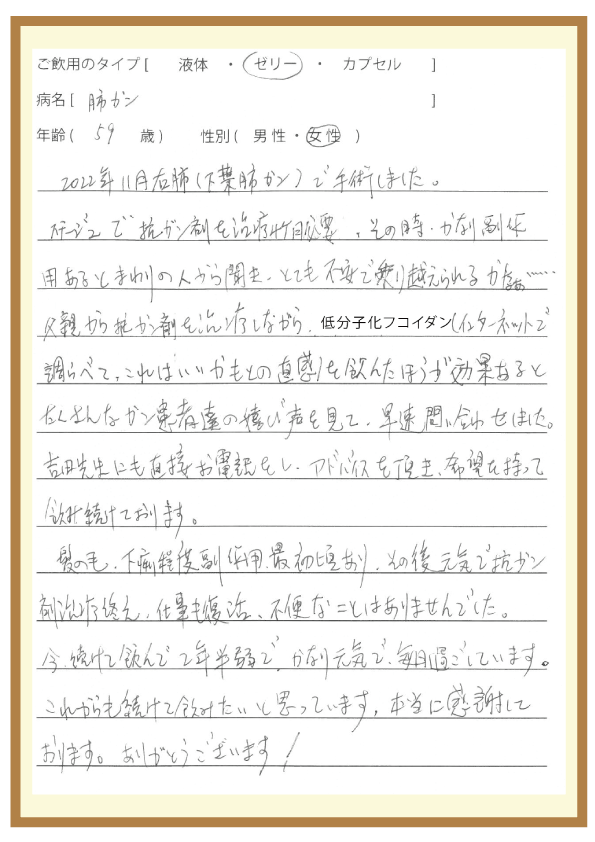 ご飲用のタイプ [ 液体 ・ ゼリー ・ カプセル ]
病名 [ 肺ガン ]
年齢 ( 59 歳 ) 性別 ( 男性 ・ 女性 )
2022年11月右肺(下葉肺ガン)で手術しました。
で抗ガン剤を治療 必要、その時、かなり副作
用あるとまわりの人から聞き、とても不安で乗り越えられるかなぁ……
父親から抗ガン剤を治療しながら、低分子化フコイダン(インターネットで
調らべて、これはいいかもとの直感)を飲んだほうが効果あると
たくさんなガン患者達の喜び声を見て、早速問い合わせました。
吉田先生にも直接お電話をし、アドバイスを頂き、希望を持って
飲み続けております。
髪の毛、下痢程度副作用、最初頃あり、その後元気で抗ガン
剤治療終え、仕事も復活、不便なことはありませんでした。
今、続けて飲んで2年半弱で、かなり元気で、毎日過ごしています。
これからも続けて飲みたいと思っています。本当に感謝して
おります。ありがとうございます!